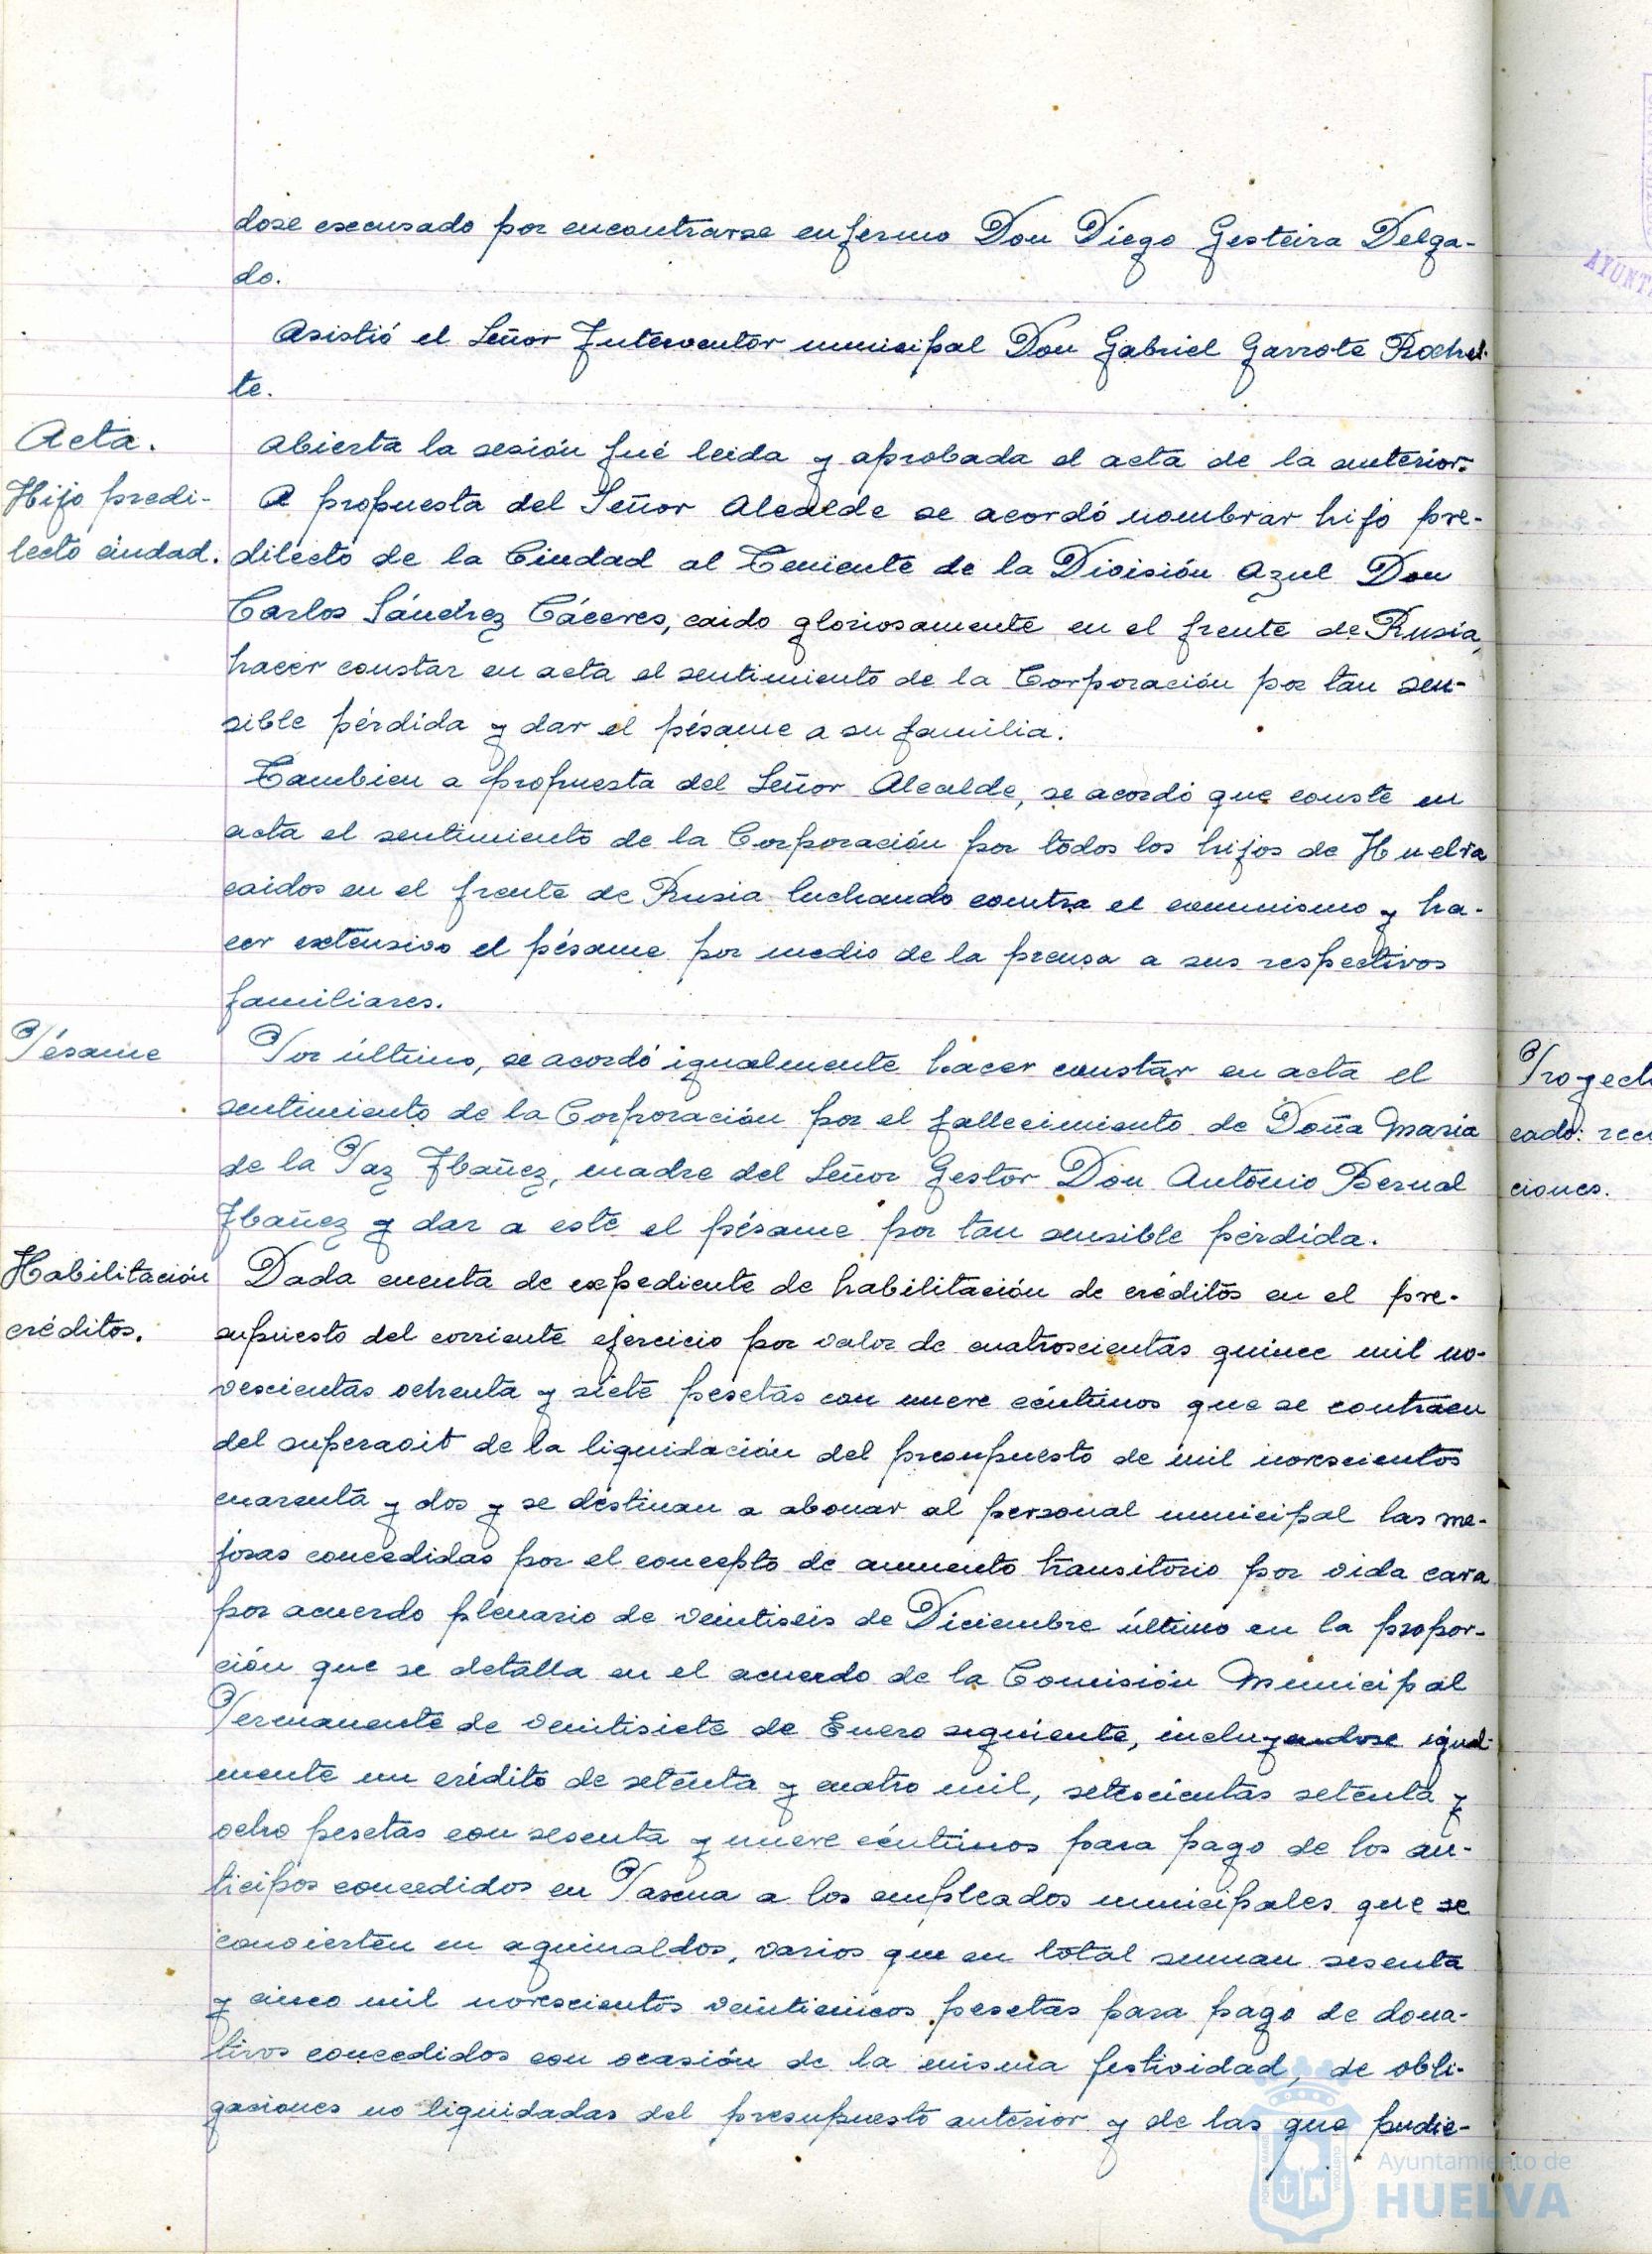 dose escusado por encontrarse enfermo Don Diego Gesteira Delga-
do.
Asistió el Señor Interventor municipal Don Gabriel Garrote
te.
Acta.
Abierta la sesión fué leida y aprobada el acta de la anterior.
Hijo predi-
lecto ciudad.
A propuesta del Señor Alcalde se acordó nombrar hijo pre-
dilecto de la Ciudad al Teniente de la División Azul Don
Carlos Sánchez Cáceres, caido gloriosamente en el frente de Rusia,
hacer constar en acta el sentimiento de la Corporación por tan sen-
sible pérdida y dar el pésame a su familia.
Tambien a propuesta del Señor Alcalde, se acordó que conste en
acta el sentimiento de la Corporación por todos los hijos de Huelva
caidos en el frente de Rusia luchando contra el comunismo y ha-
cer extensivo el pésame por medio de la prensa a sus respectivos
familiares.
Pésame
Por último, se acordó igualmente hacer constar en acta el
sentimiento de la Corporación por el fallecimiento de Doña Maria
de la Paz Ibañez, madre del Señor Gestor Don Antonio Bernal
Ibañez y dar a este el pésame por tan sensible pérdida.
Habilitación
créditos.
Dada cuenta de expediente de habilitación de créditos en el pre-
supuesto del corriente ejercicio por valor de cuatroscientas quince mil no-
vescientas ochenta y siete pesetas con nueve céntimos que se contraen
del superavit de la liquidación del presupuesto de mil novescientos
cuarenta y dos y se destinan a abonar al personal municipal las me-
joras concedidas por el concepto de aumento transitorio por vida cara
por acuerdo plenario de veintiseis de Diciembre último en la propor-
ción que se detalla en el acuerdo de la Comisión Municipal
Permanente de veintisiete de Enero siguiente, incluyendose igual-
mente un crédito de setenta y cuatro mil, setescientas setenta y
ocho pesetas con sesenta y nueve céntimos para pago de los an-
ticipos concedidos en Pascua a los empleados municipales que se
convierten en aguinaldos, varios que en total suman sesenta
y cinco mil novescientos veinticincos pesetas para pago de dona-
tivos concedidos con ocasión de la misma festividad, de obli-
gaciones no liquidadas del presupuesto anterior y de las que pudie-
Ayuntamiento de
HUELVA
AYUNT
Proyect
cado: rec
ciones.